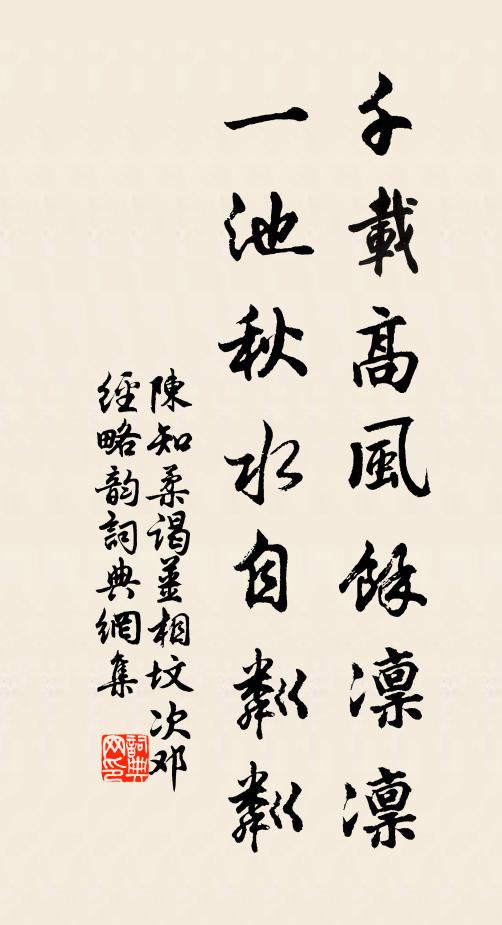 千載高風餘凜凜
一池秋水自粼粼
陳知柔謁姜相坟次邓
經略韵詞典網集
詞典
网印